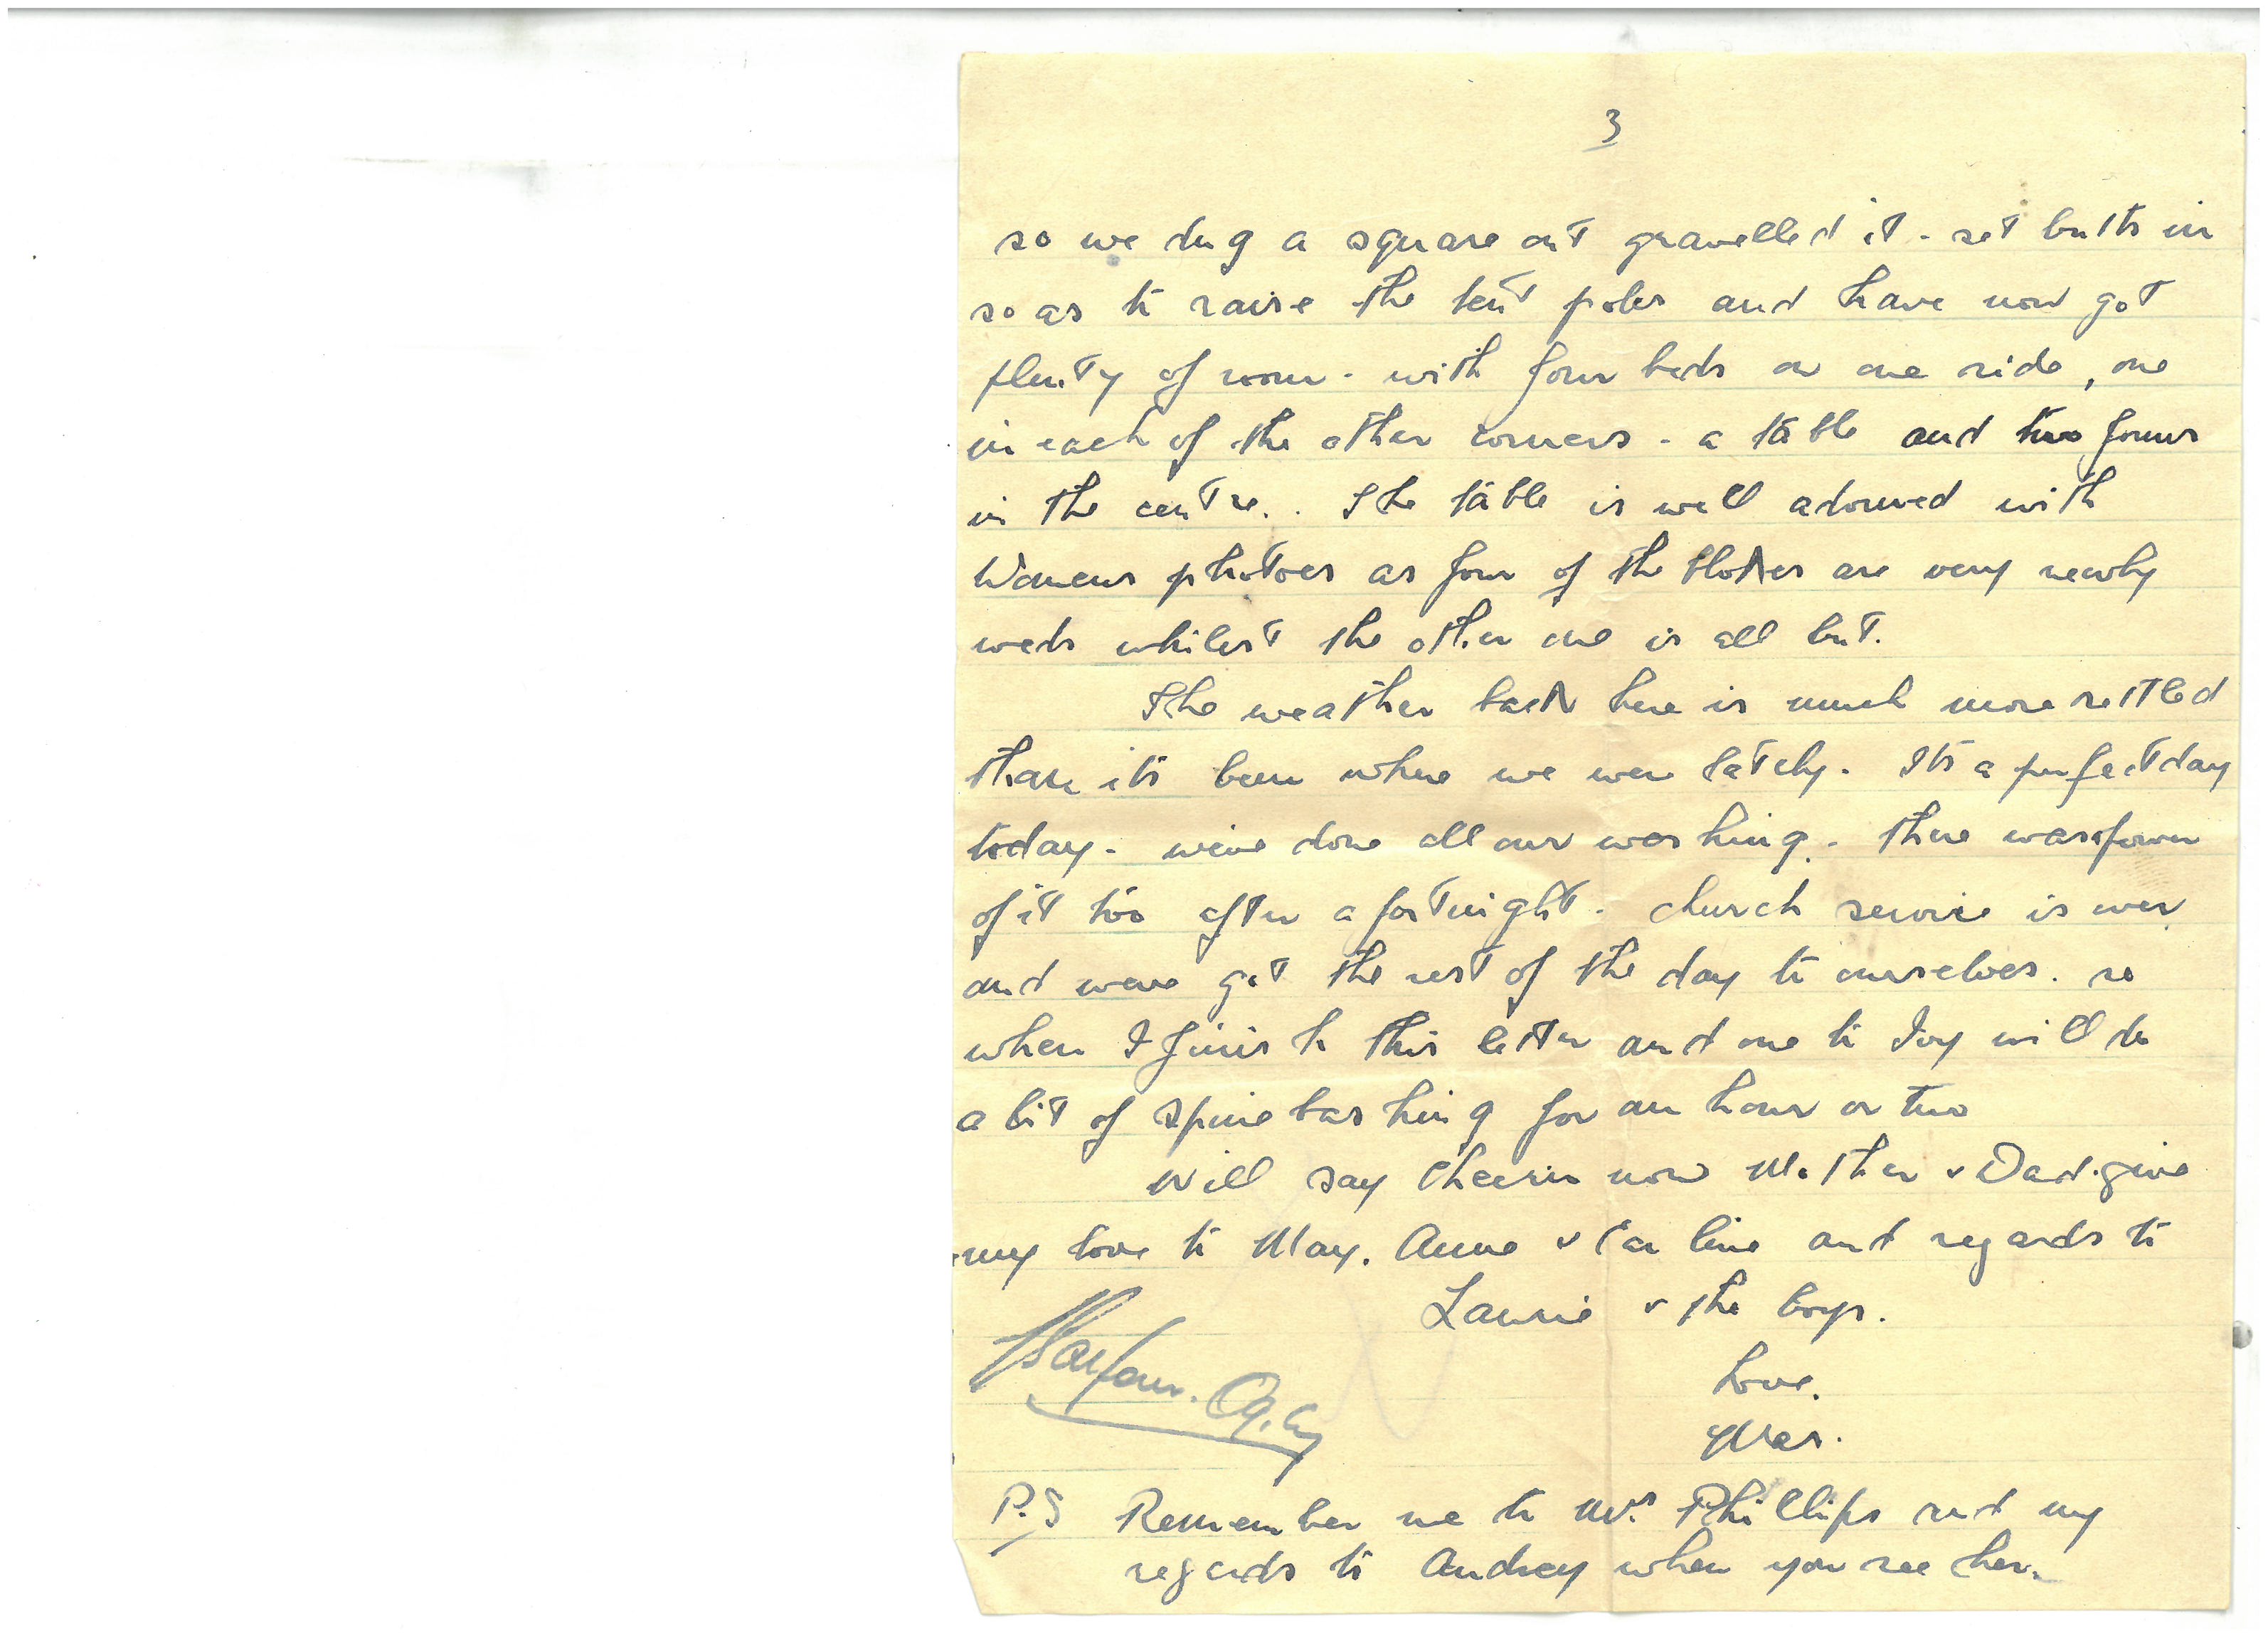 3
so we dug a square out gravelled it - set butts in
so as to raise the tent poles and have now got
plenty of room - with four beds on one side, one
in each of the other corners - a table and two forms
in the centre.. The table is well adorned with
Womens photoes as four of the blokes are very newly
weds whilest the other one is all but.
The weather back here is much more settled
than its been where we were lately. Its a perfect day
today - weve done all our washing - there was a power
of it too after a fortnight. church service is over
and weve got the rest of the day to ourselves. so
when I finish this letter and one to Ivy will do
a bit of spine bashing for an hour or two
Will say Cheerio now Mother & Dad. give
my love to May. Anne & Carline and regards to
Laurie & the boys.
Love.
Wes.
P.S Remember me to Mrs. Phillips and my
regards to Audrey when you see her.